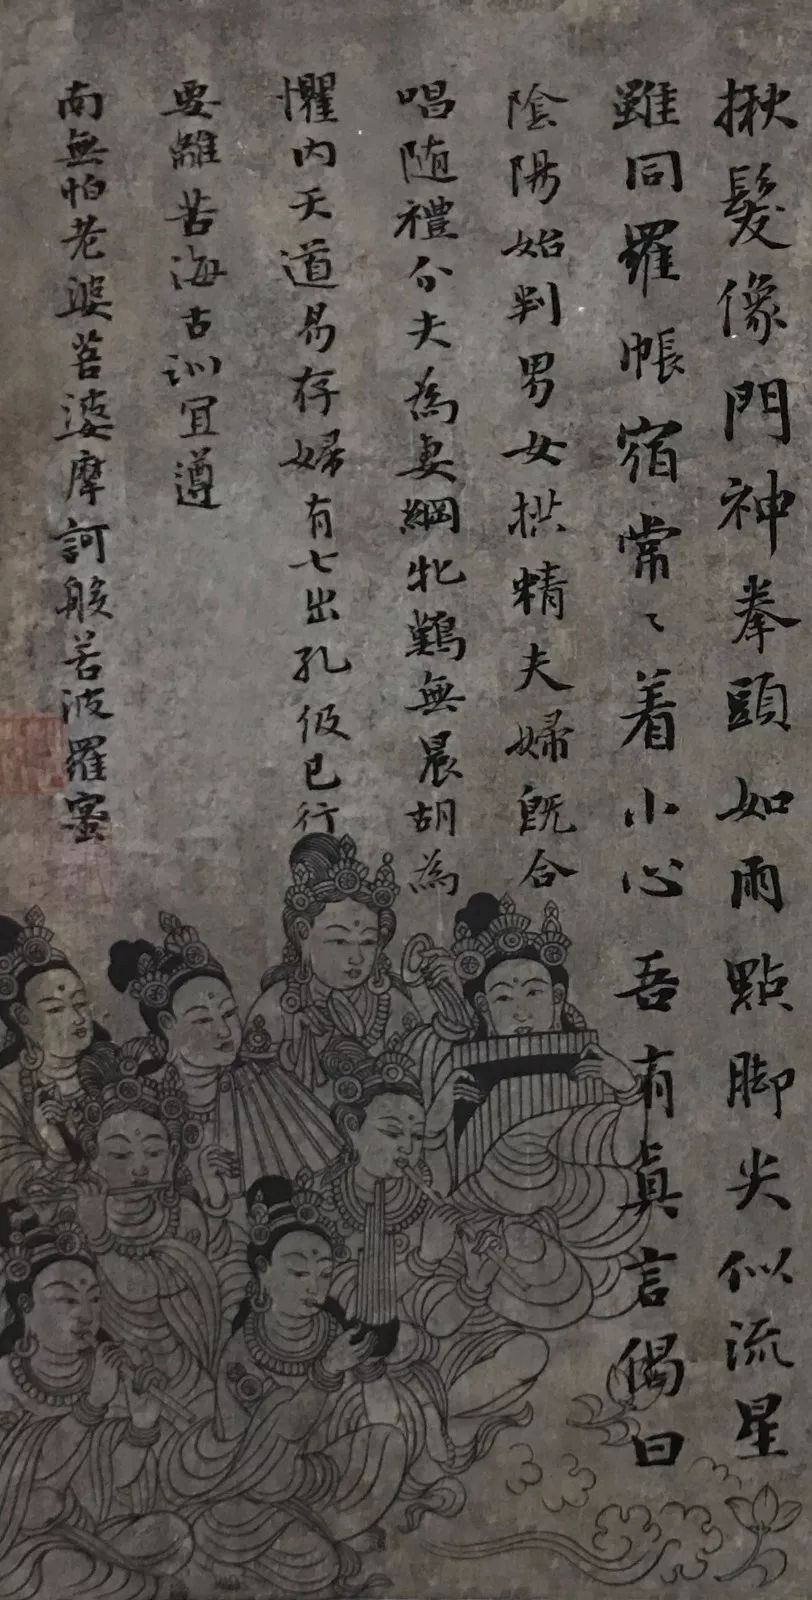 揪髮像門神拳頭如雨點脚尖似流星
雖同羅帳宿常〻着小心吾有真言偈曰
陰陽始判男女拱精夫婦既合
唱随禮分夫為妻綱牝鷄無晨胡為
懼内天道易存婦有七出孔伋已行
要離苦海古訓宜遵
南無怕老婆菩婆摩訶般若波羅蜜